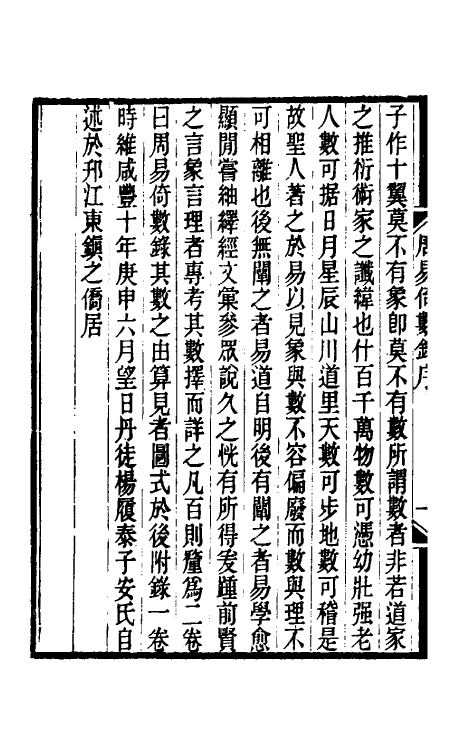 子作十翼莫不有象卽莫不有數所謂數者非若道家
之推衍術家之讖緯也什百千萬物數可憑幼壯强老
人數可据日月星辰山川道里天數可步地數可稽是
故聖人著之於易以見象與數不容偏廢而數與理不
可相離也後無闡之者易道自明後有闡之者易學愈
顯閒嘗紬繹經文彙參眾說久之恍有所得爰踵前賢
之言象言理者專考其數擇而詳之凡百則釐爲二卷
曰周易倚數錄其數之由算見者圖式於後附錄一卷
時維咸豐十年庚申六月望日丹徒楊履泰子安氏自
述於邗江東鎭之僑居
周易倚數錄序
一